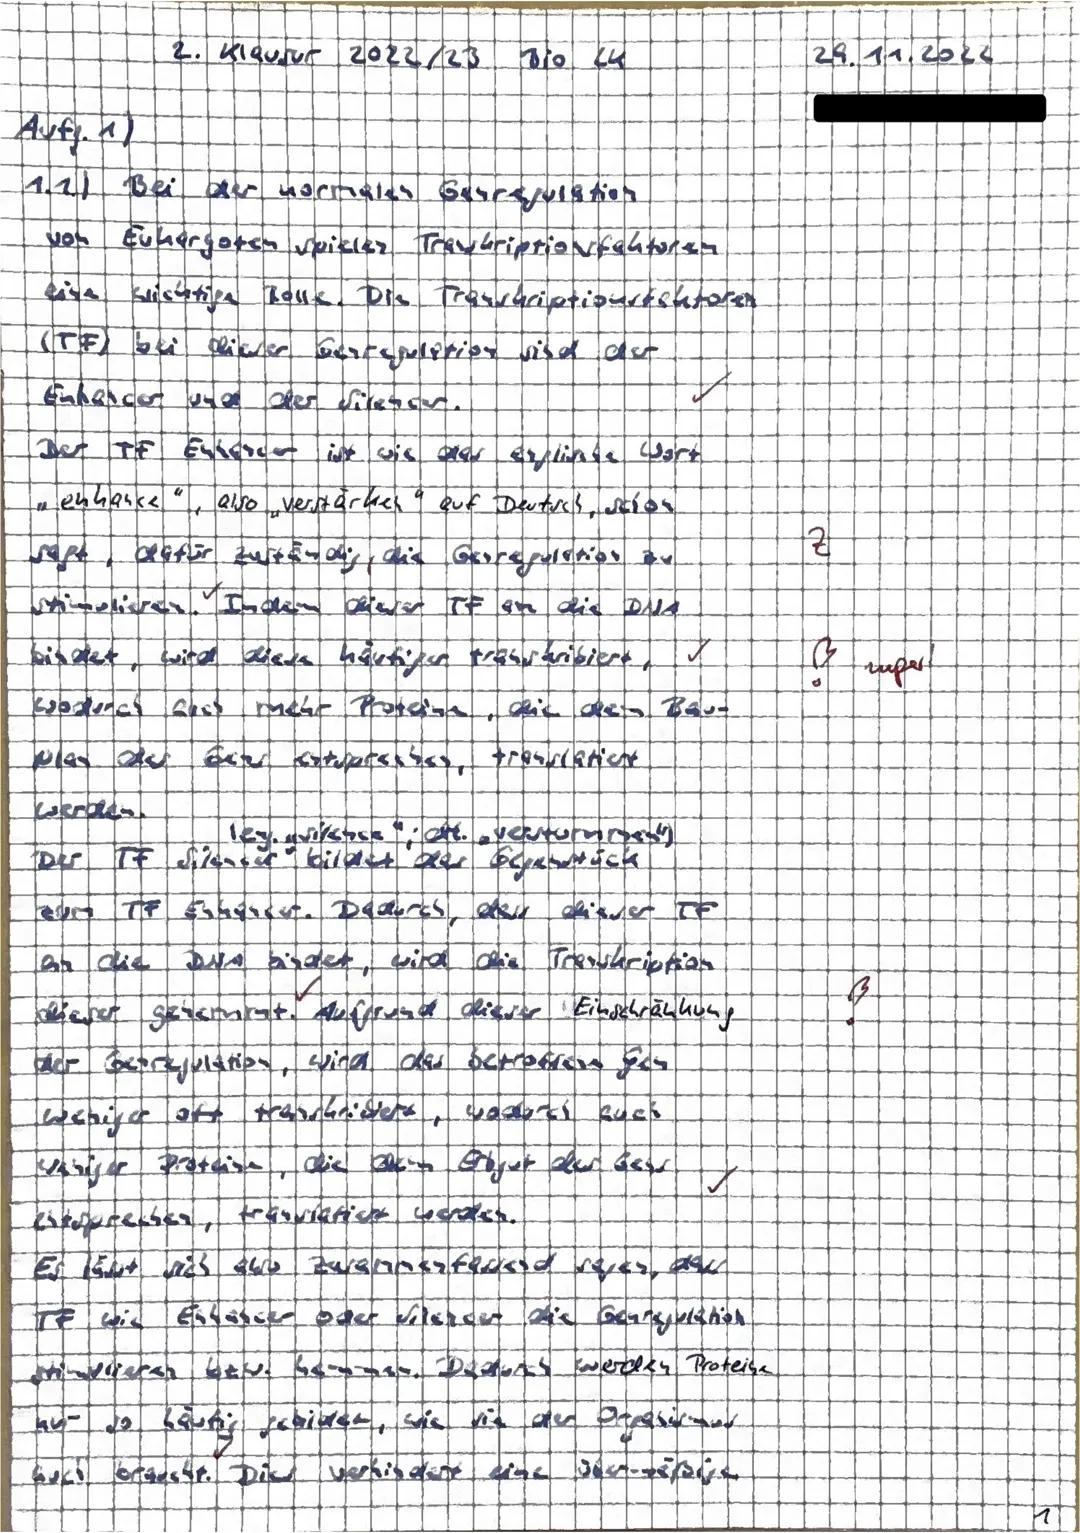 2. Klausur 2022/23 Bio LK 29.11.2022
Aufg. 1)
1.1) Bei der normalen Genregulation
von Eukaryoten spielen Transkriptionsfaktoren
eine wichtige Rolle. Die Transkriptionsfaktoren
(TF) bei dieser Genregulation sind der
Enhancer und der Silencer.
Der TF Enhancer ist wie das englische Wort
„enhance“, also „verstärken“ auf Deutsch, schon
sagt, dafür zuständig, die Genregulation zu
Z
stimulieren. Indem dieser TF an die DNA
bindet, wird diese häufiger transkribiert,
super!
wodurch auch mehr Proteine, die dem Bau-
plan des Gens entsprechen, translatiert
werden.
(eng. „silence“; dt. „verstummen“)
Der TF Silencer bildet das Gegenstück
zum TF Enhancer. Dadurch, dass dieser TF
an die DNA bindet, wird die Transkription
dieser gehemmt. Aufgrund dieser Einschränkung
der Genregulation, wird das betroffene Gen
weniger oft transkribiert, wodurch auch
weniger Proteine, die dem Erbgut des Gens
entsprechen, translatiert werden.
Es lässt sich also zusammenfassend sagen, dass
TF wie Enhancer oder Silencer die Genregulation
stimulieren bzw. hemmen. Dadurch werden Proteine
nur so häufig gebildet, wie sie der Organismus
auch braucht. Dies verhindert eine übermäßige
1